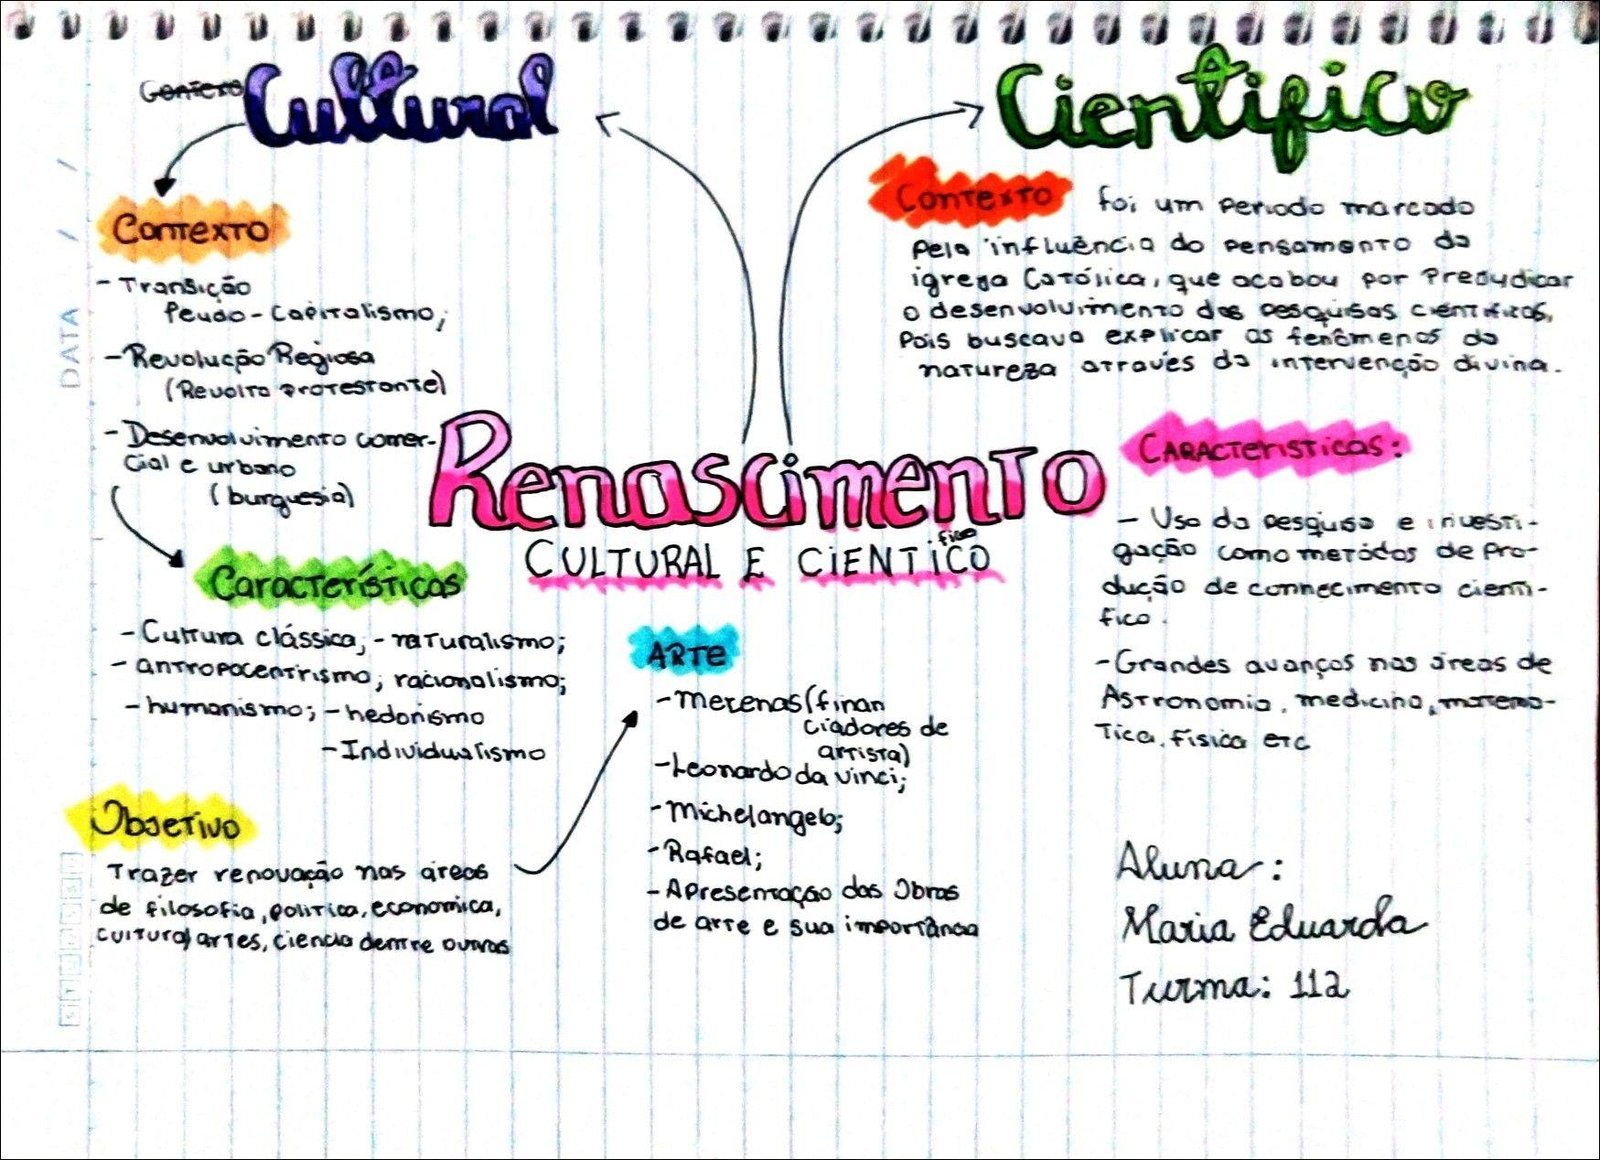 Renascimento
CULTURAL E CIENTICO
fico
Contexto
Cultural
Contexto
- Transição
Feudo-Capitalismo;
- Revolução Regiosa
(Revolta protestante)
- Desenvolvimento comer-
cial e urbano
(burguesia)
Características
- Cultura clássica; - naturalismo;
- antropocentrismo; racionalismo;
- humanismo; - hedonismo
- Individualismo
Objetivo
Trazer renovação nas áreas
de filosofia, politica, economica,
cultural, artes, ciencia dentre outros
ARTE
- Mecenas (finan
ciadores de
artista)
- Leonardo da vinci;
- Michelangelo;
- Rafael;
- Apresentação das Obras
de arte e sua importância
Cientifico
Contexto foi um periodo marcado
pela influência do pensamento da
igreja Católica, que acabou por Prejudicar
o desenvolvimento das pesquisas cientificas,
Pois buscava explicar os fenômenos da
natureza através da intervenção divina.
CARACTERISTICAS:
- Uso da pesquisa e investi-
gação como metódos de pro-
dução de connecimento cienti-
fico.
- Grandes avanços nas áreas de
Astronomia, medicina, matema-
Tica, física etc
Aluna:
Maria Eduarda
Turma: 112
DATA / /